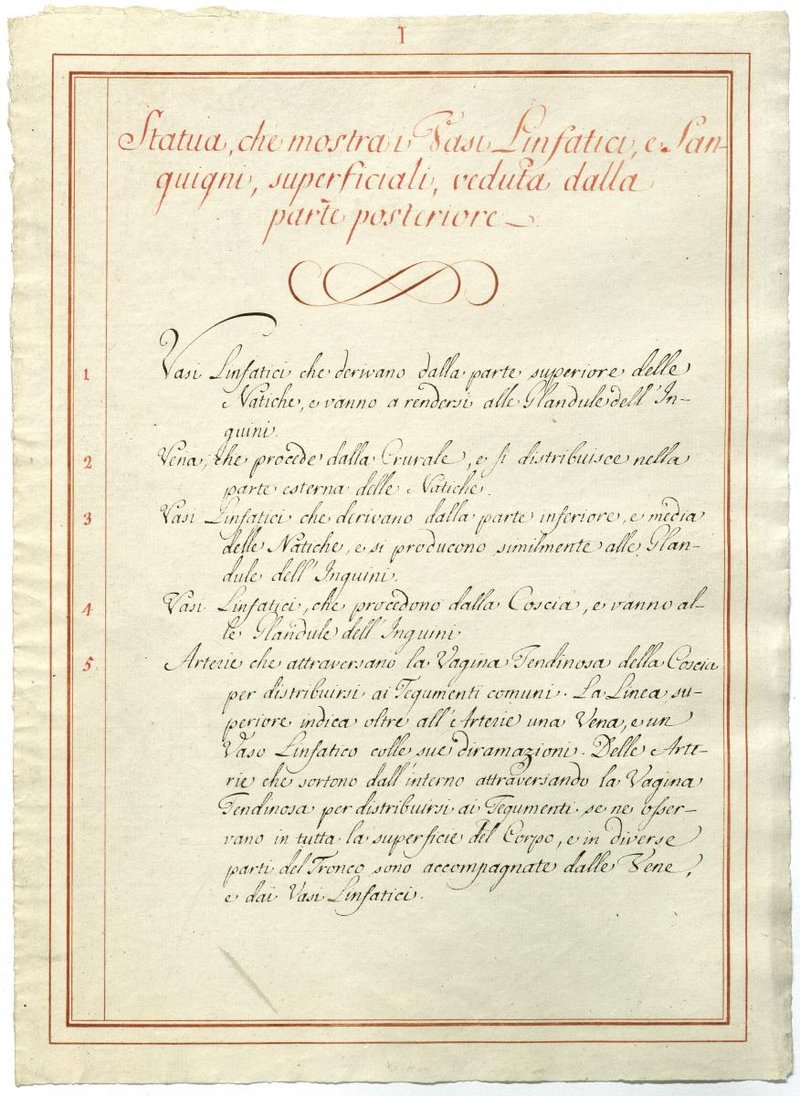 I
Statua, che mostra i Vasi Linfatici, e San-
quigni, superficiali, veduta dalla
parte posteriore
1 Vasi Linfatici che derivano dalla parte superiore delle
Natiche, e vanno a rendersi alle Glandule dell' In-
guini.
2 Vena, che procede dalla Crurale, e si distribuisce nella
parte esterna delle Natiche.
3 Vasi Linfatici che derivano dalla parte inferiore, e media
delle Natiche, e si producono similmente alle Glan-
dule dell' Inguini.
4 Vasi Linfatici, che procedono dalla Coscia, e vanno al-
le Glandule dell' Inguini
5 Arterie che attraversano la Vagina Tendinosa della Coscia
per distribuirsi ai Tegumenti comuni. La Linea su-
periore indica oltre all' Arterie una Vena, e un
Vaso Linfatico colle sue diramazioni. Delle Arte-
rie che sortono dall' interno attraversando la Vagina
Tendinosa per distribuirsi ai Tegumenti se ne osser-
vano in tutta la superficie del Corpo, e in diverse
parti del Tronco sono accompagnate dalle Vene,
e dai Vasi Linfatici.